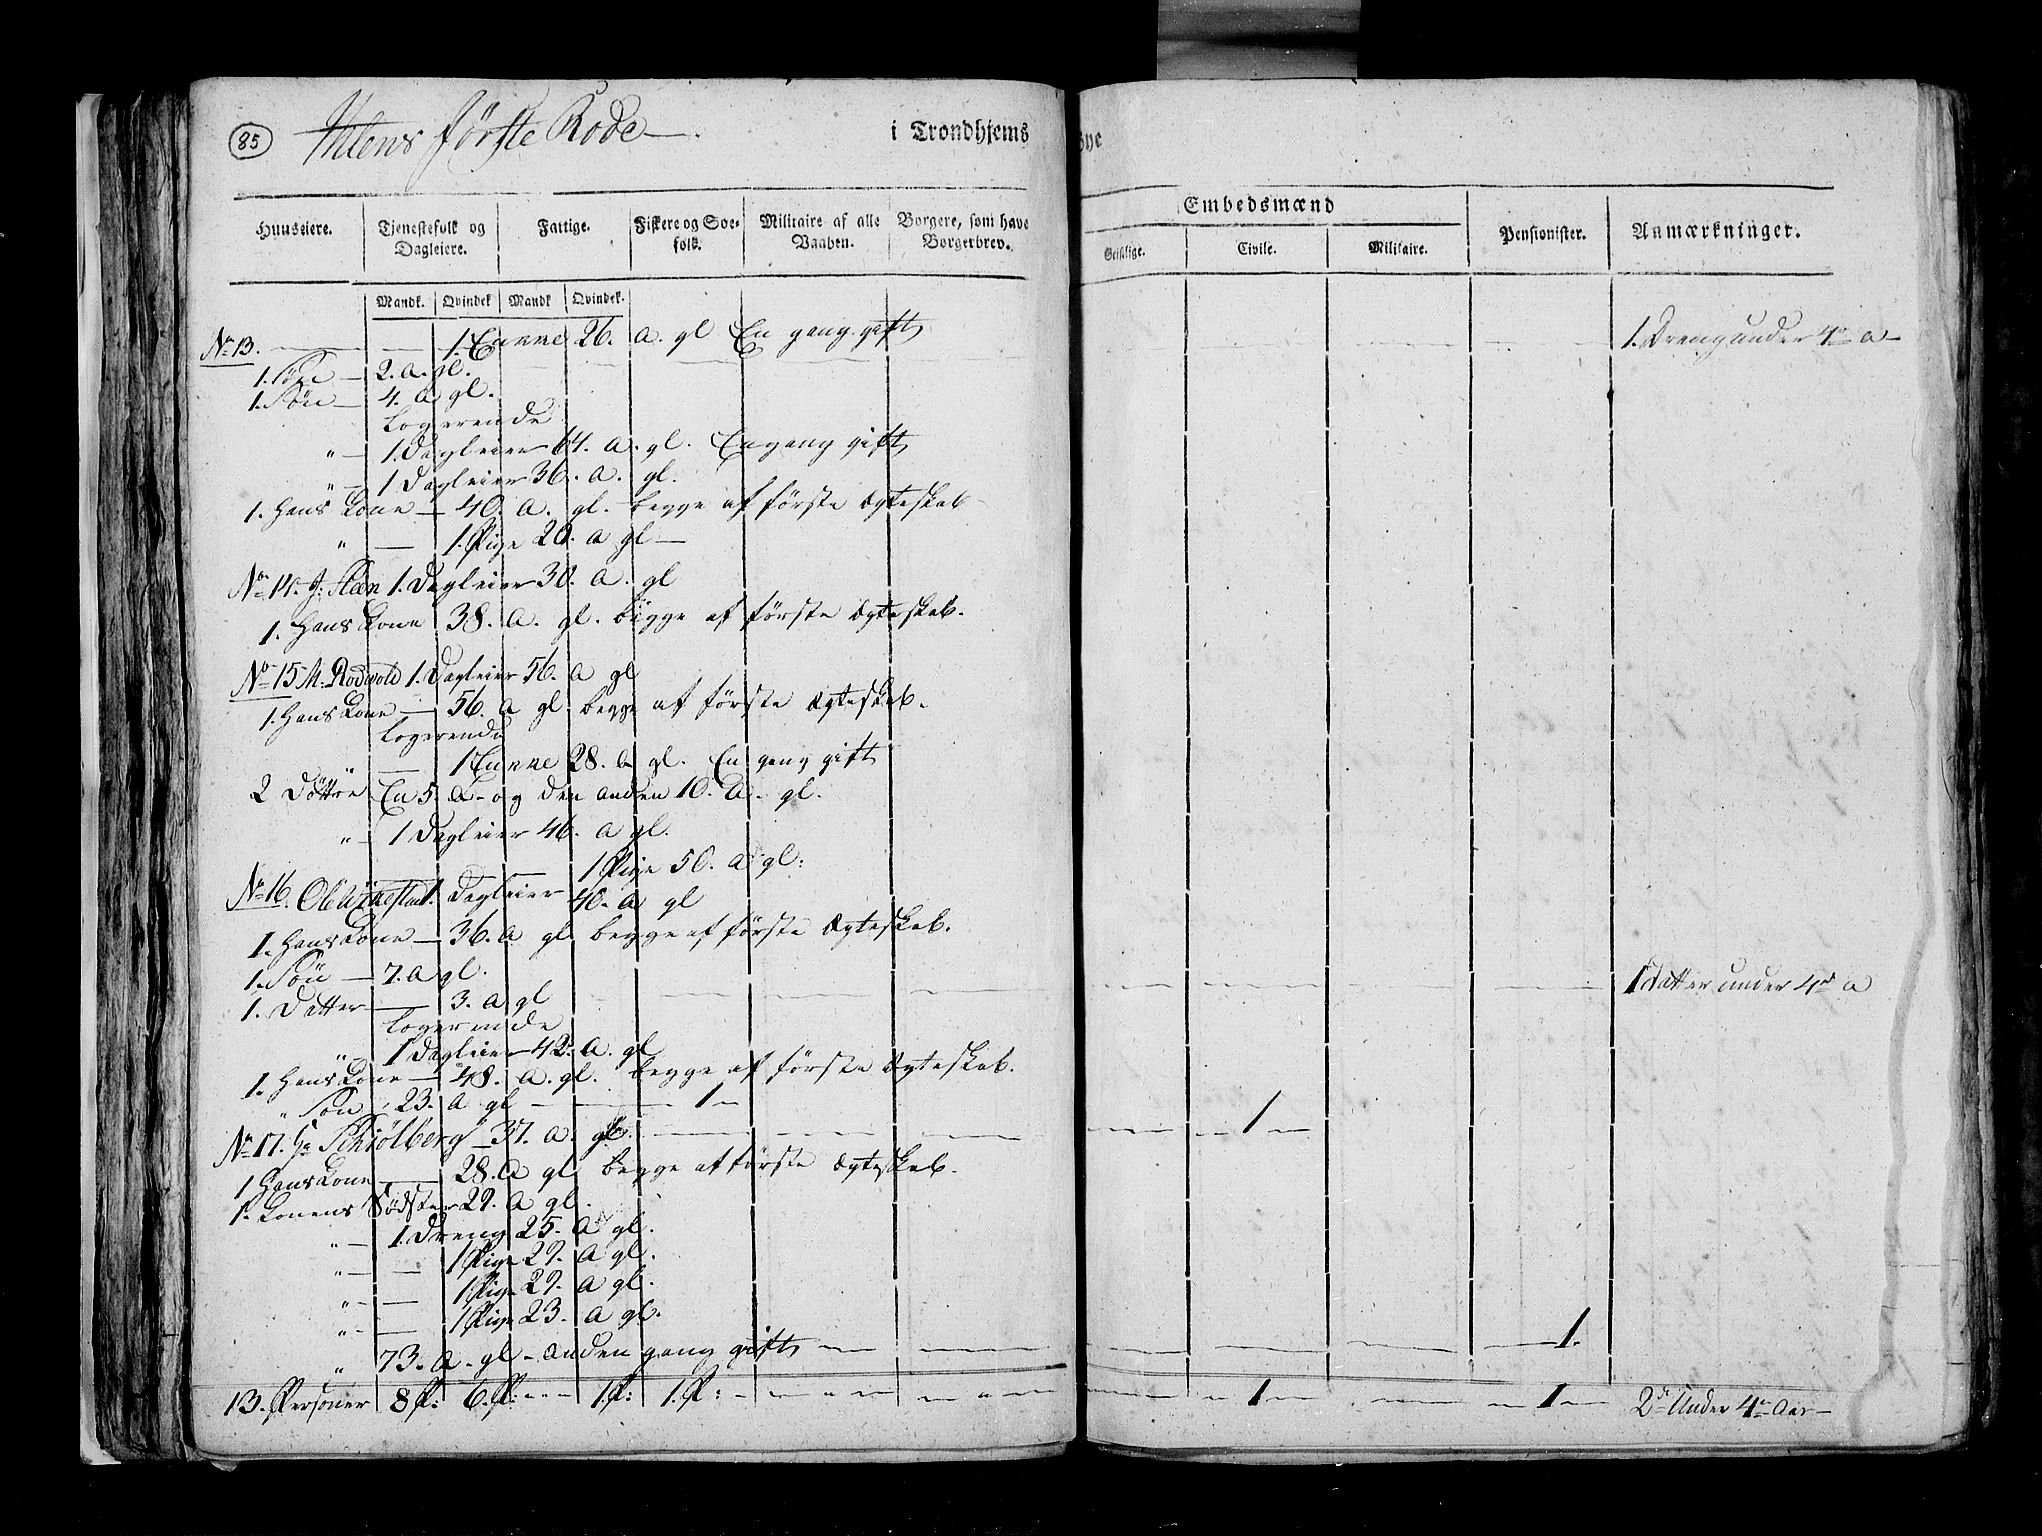 85 Ihlens første Rode — . i Trondhjems Bye
Embedsmænd
Huuseiere. Tjenestefolk og Dagleiere. Fattige. Fiskere og Soefolk. Militaire af alle Vaaben. Borgere, som have Borgerbrev. Geistlige. Civile. Militaire. Pensionister. Anmærkninger.
Mandk. Qvindek Mandk Qvindek.
No 13. — — 1. Enke 26. a. gl En gang gift 1. Dreng under 4re a —
1. Søn — 2. a. gl.
1. Søn — 4. a gl.
Logerende
" — 1. Dagleier 64. a. gl. En gang gift
" — 1 Dagleier 36. a. gl.
1. Hans Kone — 40. a. gl. begge af første Ægteskab —
" — 1. Pige 20. a gl —
No 14. J: Steen 1. Dagleier 30. a. gl
1. Hans Kone 38. a. gl. begge af første Ægteskab.
No 15 M. Rodvold 1. Dagleier 56. a gl
1. Hans Kone — 56. a gl begge af første Ægteskab.
Logerende
" — 1 Enke 28. a gl. En gang gift
2 Døttre En 5. a — og den anden 10. a. gl.
" — 1 Dagleier 46. a gl.
1 Pige 50. a gl:
No 16. Ole 1. Dagleier 40. a gl
1. Hans Kone — 36. a gl begge af første Ægteskab.
1. Søn — 7. a gl.
1. Datter — 3. a gl 1 Datter under 4re a
Logerende
" 1 Dagleier 42. a. gl
1. Hans Kone — 48. a. gl. begge af første Ægteskab.
" Søn 23. a gl — — 1 —
No 17. Hr Schiølberg — 37. a. gl. — — — 1 —
1 Hans Kone — 28. a gl begge af første Ægteskab.
1. Konens Sødster 29. a gl.
" — 1. Dreng 25. a gl.
" — — 1 Pige 29. a gl.
" — — 1 Pige 29. a gl.
" — — 1 Pige 23. a gl.
" 73. a. gl — anden gang gift — — — 1.
13. Personer 8 P: 6. P: — 1. P: 1. P: — — 1 — — 1 — 2de Under 4re Aar —